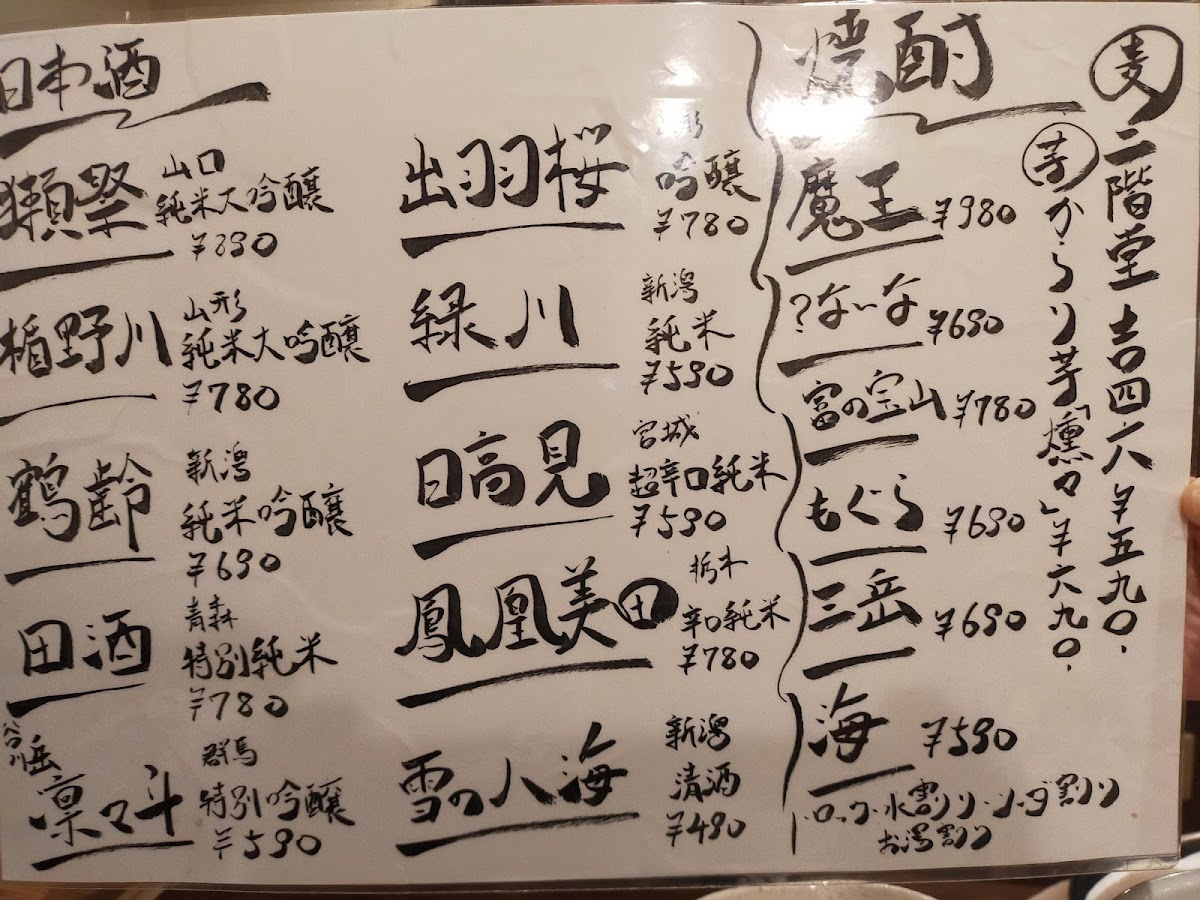 日本酒
獺祭
山口
純米大吟醸
¥890
楯野川
山形
純米大吟醸
¥780
鶴齢
新潟
純米吟醸
¥690
田酒
青森
特別純米
¥780
谷川岳
凛々斗
群馬
特別吟醸
¥590
出羽桜
吟醸
¥780
緑川
新潟
純米
¥590
日高見
宮城
超辛口純米
¥590
鳳凰美田
栃木
辛口純米
¥780
雪の八海
新潟
清酒
¥490
焼酎
魔王 ¥980
?ない な ¥690
富の宝山 ¥780
もぐら ¥690
三岳 ¥690
海 ¥590
・ロック・水割り・ソーダ割り
お湯割り
麦 二階堂 吉四六 ¥五九〇.
芋 からり芋「燻々」¥六九〇.